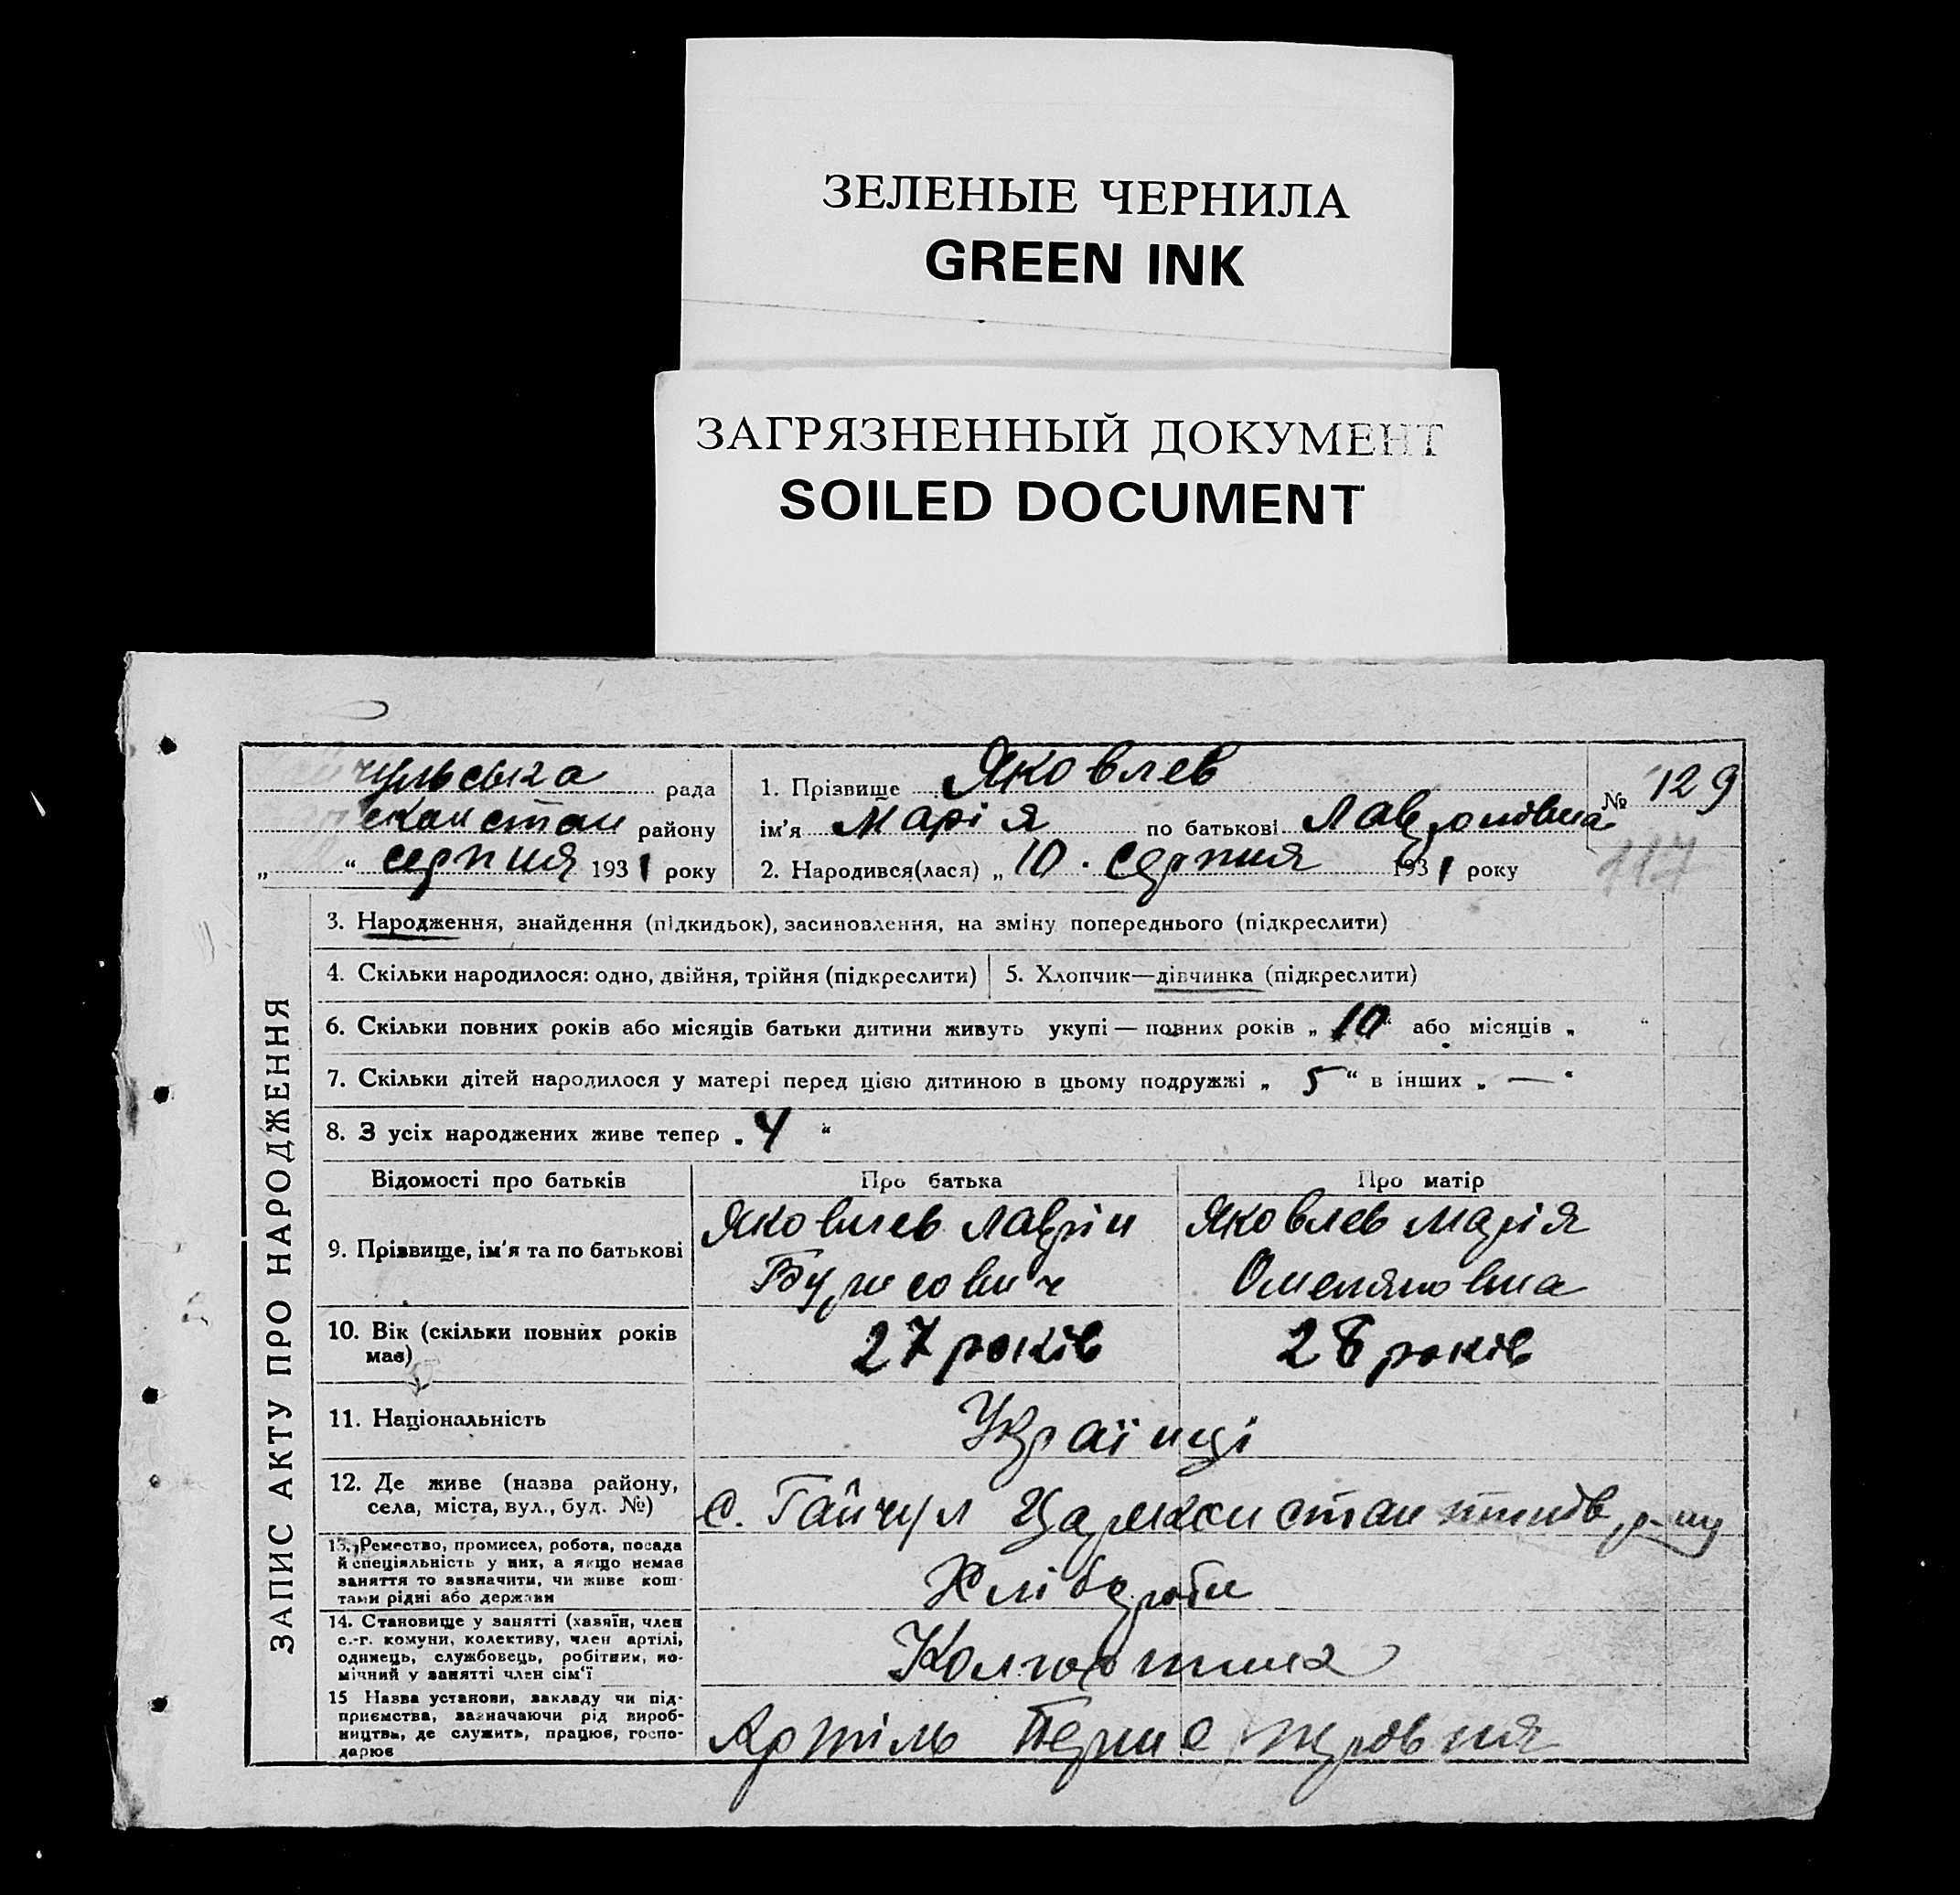 ЗЕЛЕНЫЕ ЧЕРНИЛА
GREEN INK
ЗАГРЯЗНЕННЫЙ ДОКУМЕНТ
SOILED DOCUMENT
ЗАПИС АКТУ ПРО НАРОДЖЕННЯ
чульська рада
району
„ “ серпня 1931 року
1. Прізвище Яковлев
ім'я Марія по батькові Лавронівна
2. Народився(лася) „10. Серпня 1931 року
№ 129
117
3. Народження, знайдення (підкидьок), засиновлення, на зміну попереднього (підкреслити)
4. Скільки народилося: одно, двійня, трійня (підкреслити)
5. Хлопчик—дівчинка (підкреслити)
6. Скільки повних років або місяців батьки дитини живуть укупі — повних років „10“ або місяців „ “
7. Скільки дітей народилося у матері перед цією дитиною в цьому подружжі „ 5 “ в інших „ — “
8. З усіх народжених живе тепер „ 4 “
Відомості про батьків
Про батька
Про матір
9. Прізвище, ім'я та по батькові
Яковлев Лаврін
Борисович
Яковлев Марія
Омеляновна
10. Вік (скільки повних років має)
27 років
28 років
11. Національність
Українці
12. Де живе (назва району,
села, міста, вул., буд. №)
с. Гайчул р-ну
13. Ремество, промисел, робота, посада
й спеціяльність у них, а якщо немає
заняття то зазначити, чи живе кош-
тами рідні або держави
Хлібороби
14. Становище у занятті (хазяїн, член
с.-г. комуни, колективу, член артілі,
одинець, службовець, робітник, по-
мічний у занятті член сім'ї
15 Назва установи, закладу чи під-
приємства, зазначаючи рід вироб-
ництва, де служить, працює, госпо-
дарює
Артіль Перше травня